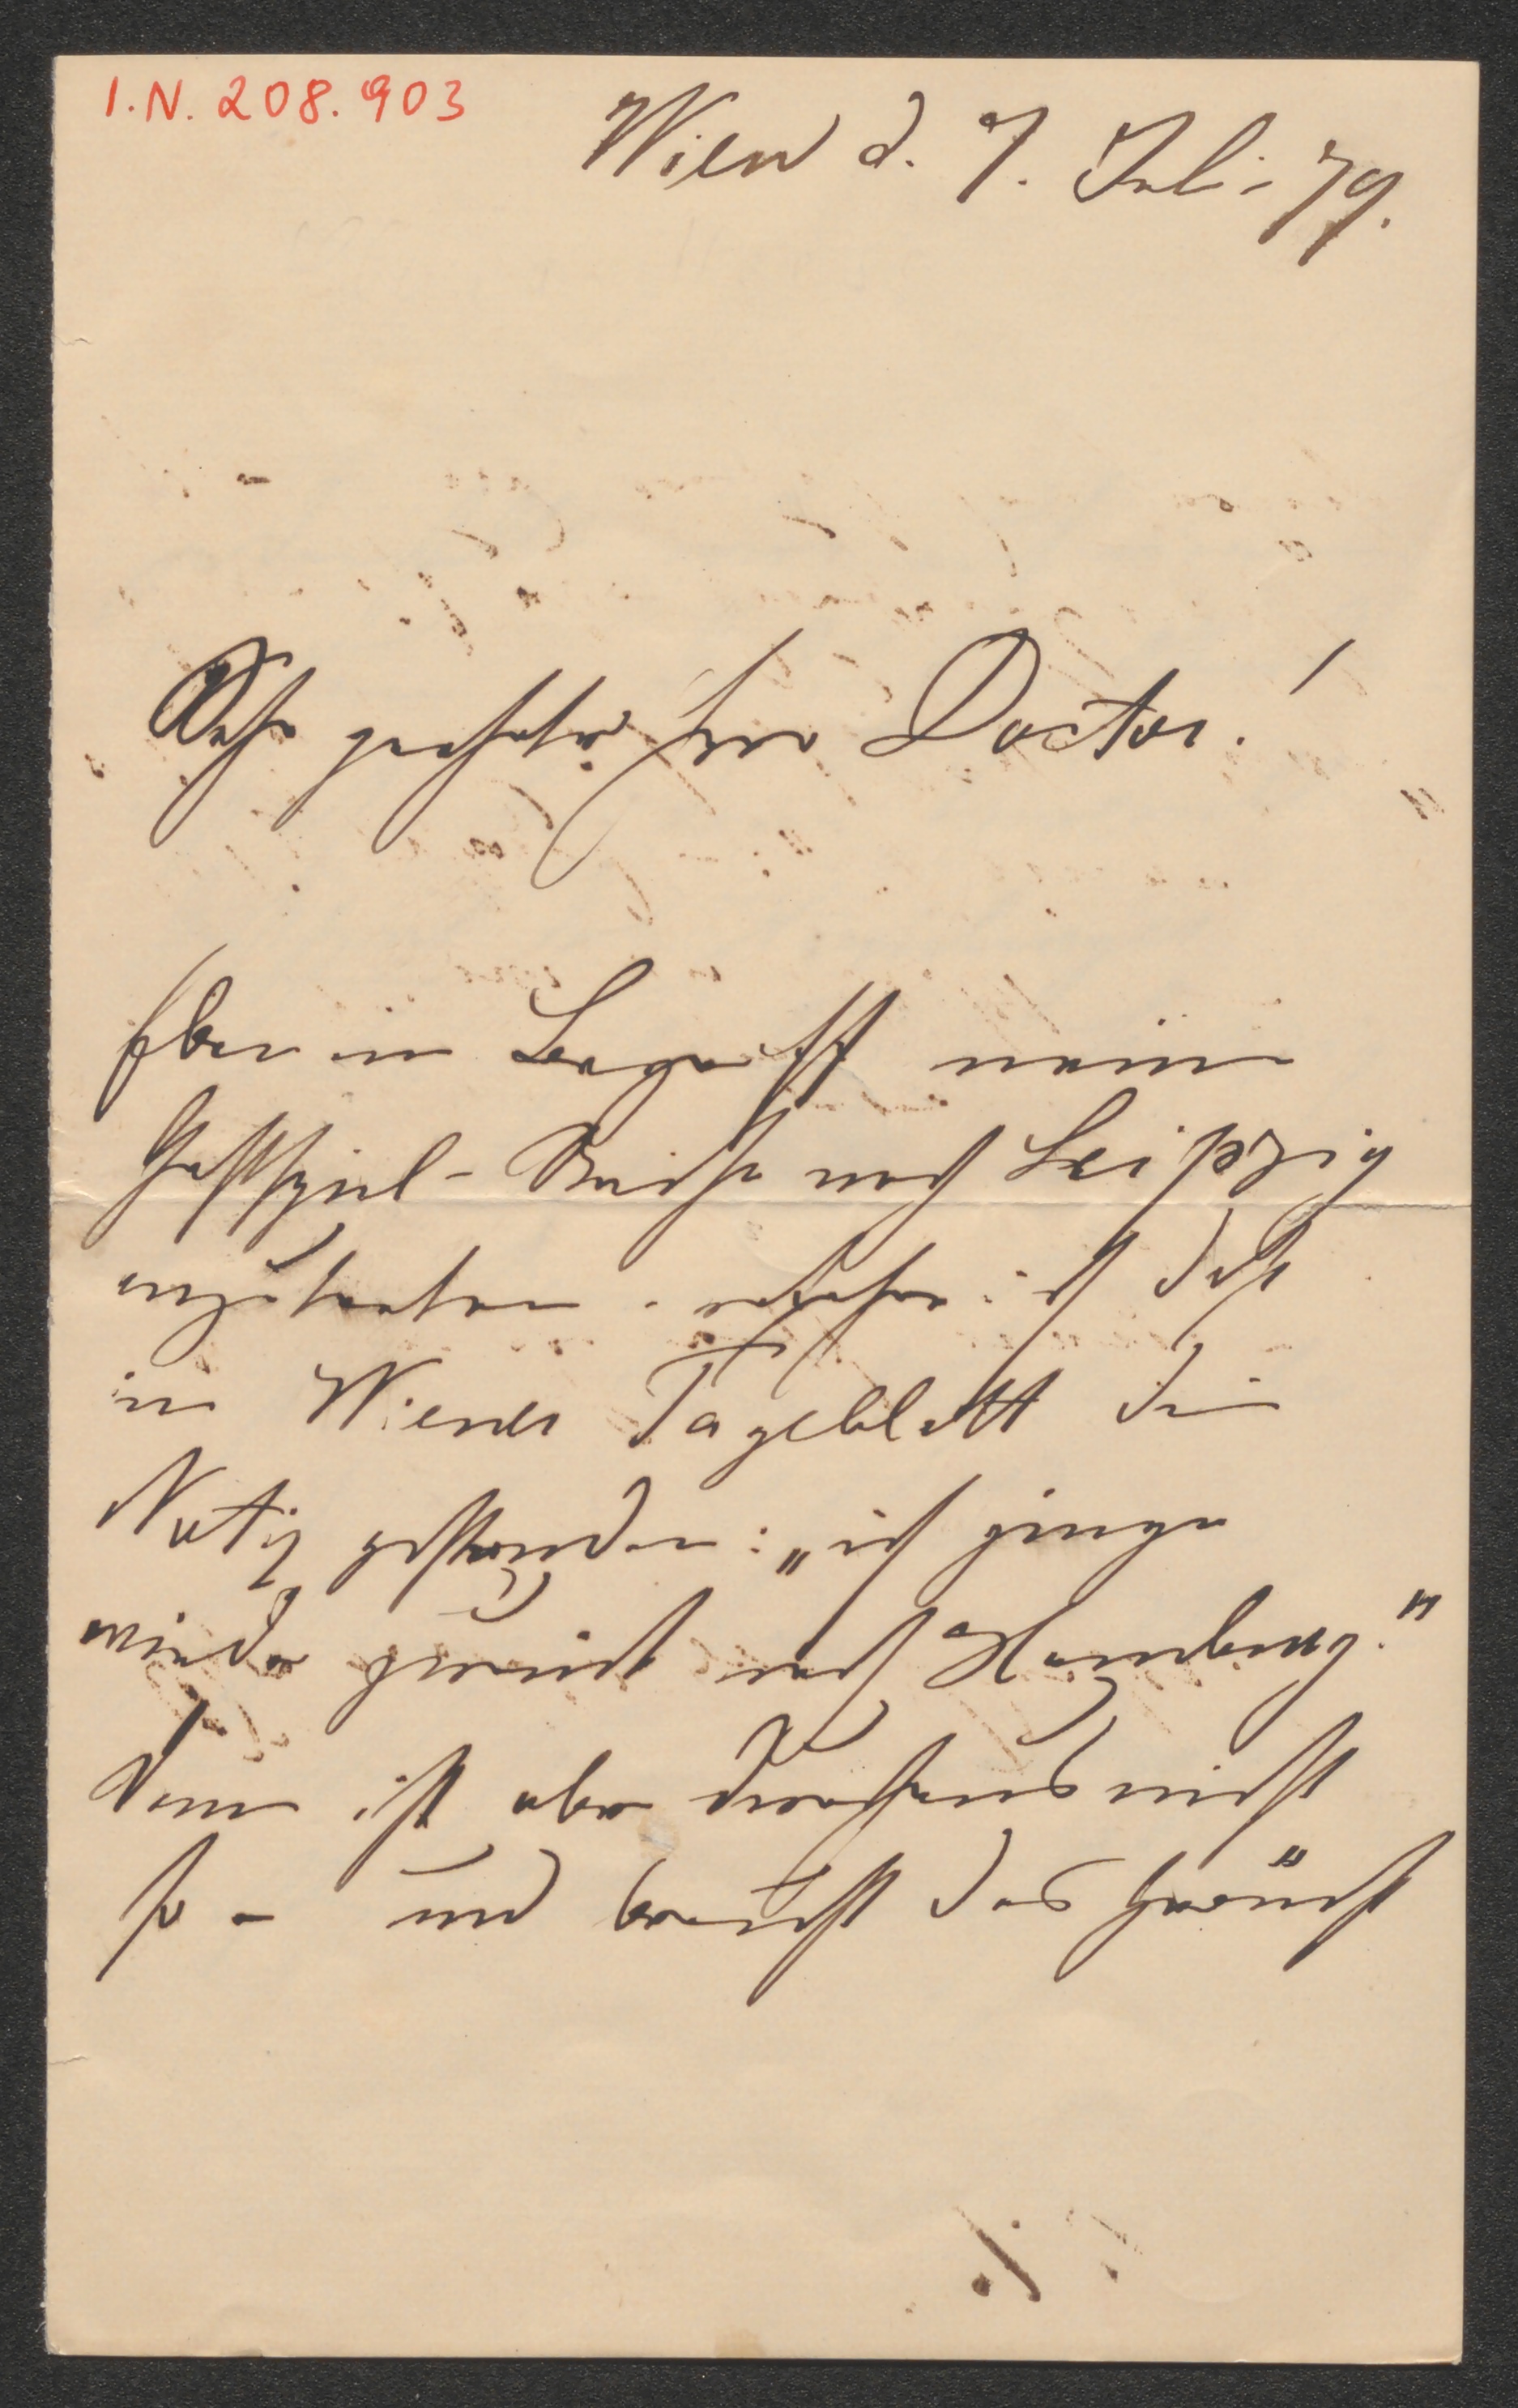 I.N. 208.903
Wien d. 7. Juli 79.
Sehr geehrter Herr Doctor!
Eben im Begriff meine
Gastspiel-Reise nach Leipzig
anzutreten erfahre ich daß
im Wiener Tageblatt die
Notiz gestanden: „ich ginge
wieder zurück nach Hamburg."
Dem ist aber durchaus nicht
so - und braucht das Gerücht